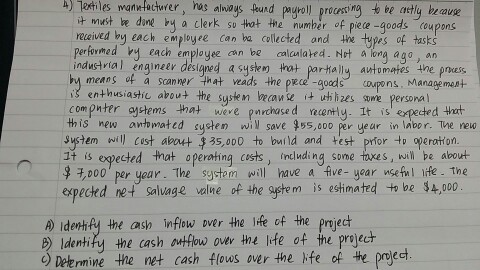 4) Textiles manufacturer, has always found payroll processing to be costly because
it must be done by a clerk so that the number of piece-goods coupons
received by each employee can be collected and the types of tasks
performed by each employee can be calculated. Not a long ago, an
industrial engineer designed a system that partially automates the process
by means of a scanner that reads the piece-goods coupons. Management
is enthusiastic about the system because it utilizes some personal
computer systems that were purchased recently. It is expected that
this new automated system will save $55,000 per year in labor. The new
system will cost about $35,000 to build and test prior to operation.
It is expected that operating costs, including some taxes, will be about
$7,000 per year. The system will have a five-year useful life. The
expected net salvage value of the system is estimated to be $4,000.
A) Identify the cash inflow over the life of the project
B) Identify the cash outflow over the life of the project
C) Determine the net cash flows over the life of the project.